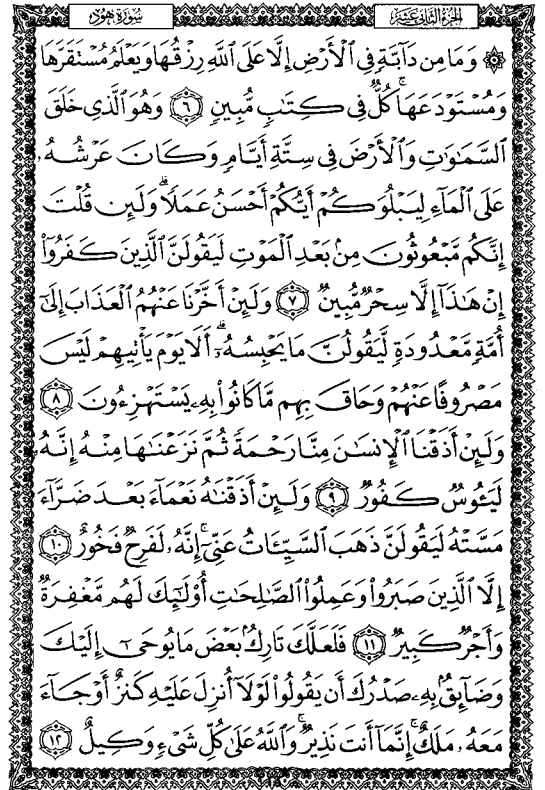 الجزء الثاني عشر
سورة هود
۞ وَمَا مِن دَآبَّةٍ فِي ٱلْأَرْضِ إِلَّا عَلَى ٱللَّهِ رِزْقُهَا وَيَعْلَمُ مُسْتَقَرَّهَا
وَمُسْتَوْدَعَهَا ۚ كُلٌّ فِي كِتَٰبٍ مُّبِينٍ ٦ وَهُوَ ٱلَّذِي خَلَقَ
ٱلسَّمَٰوَٰتِ وَٱلْأَرْضَ فِي سِتَّةِ أَيَّامٍ وَكَانَ عَرْشُهُۥ
عَلَى ٱلْمَآءِ لِيَبْلُوَكُمْ أَيُّكُمْ أَحْسَنُ عَمَلًا ۗ وَلَئِن قُلْتَ
إِنَّكُم مَّبْعُوثُونَ مِنۢ بَعْدِ ٱلْمَوْتِ لَيَقُولَنَّ ٱلَّذِينَ كَفَرُوٓا۟
إِنْ هَٰذَآ إِلَّا سِحْرٌ مُّبِينٌ ٧ وَلَئِنْ أَخَّرْنَا عَنْهُمُ ٱلْعَذَابَ إِلَىٰٓ
أُمَّةٍ مَّعْدُودَةٍ لَّيَقُولُنَّ مَا يَحْبِسُهُۥٓ ۗ أَلَا يَوْمَ يَأْتِيهِمْ لَيْسَ
مَصْرُوفًا عَنْهُمْ وَحَاقَ بِهِم مَّا كَانُوا۟ بِهِۦ يَسْتَهْزِءُونَ ٨
وَلَئِنْ أَذَقْنَا ٱلْإِنسَٰنَ مِنَّا رَحْمَةً ثُمَّ نَزَعْنَٰهَا مِنْهُ إِنَّهُۥ
لَيَـُٔوسٌ كَفُورٌ ٩ وَلَئِنْ أَذَقْنَٰهُ نَعْمَآءَ بَعْدَ ضَرَّآءَ
مَسَّتْهُ لَيَقُولَنَّ ذَهَبَ ٱلسَّيِّـَٔاتُ عَنِّيٓ ۚ إِنَّهُۥ لَفَرِحٌ فَخُورٌ ١٠
إِلَّا ٱلَّذِينَ صَبَرُوا۟ وَعَمِلُوا۟ ٱلصَّٰلِحَٰتِ أُو۟لَٰٓئِكَ لَهُم مَّغْفِرَةٌ
وَأَجْرٌ كَبِيرٌ ١١ فَلَعَلَّكَ تَارِكٌۢ بَعْضَ مَا يُوحَىٰٓ إِلَيْكَ
وَضَآئِقٌۢ بِهِۦ صَدْرُكَ أَن يَقُولُوا۟ لَوْلَآ أُنزِلَ عَلَيْهِ كَنزٌ أَوْ جَآءَ
مَعَهُۥ مَلَكٌ ۚ إِنَّمَآ أَنتَ نَذِيرٌ ۚ وَٱللَّهُ عَلَىٰ كُلِّ شَيْءٍ وَكِيلٌ ١٢